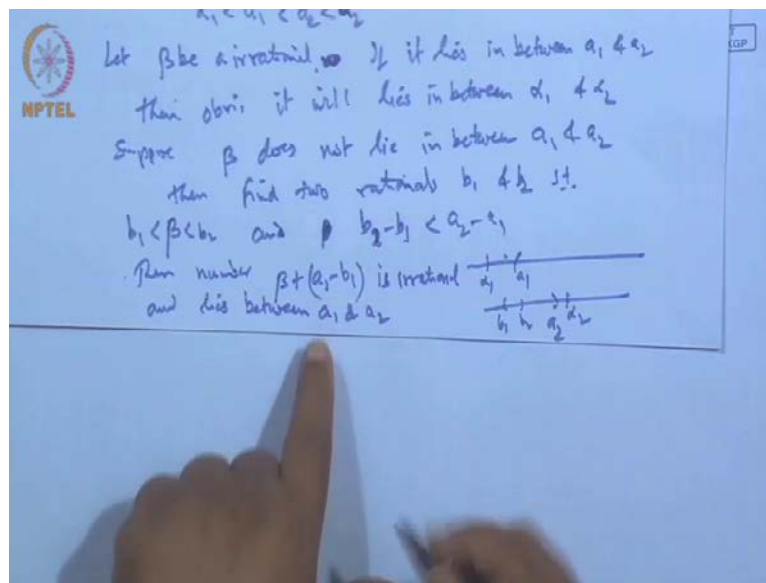 α₁ < a₁ < a₂ < α₂
Let β be a irrational, If it lies in between a₁ & a₂
then obvi, it will lies in between α₁ & α₂
Suppose β does not lie in between a₁ & a₂
then find two rationals b₁ & b₂ s.t.
b₁ < β < b₂ and b₂-b₁ < a₂-a₁
Then number β+(a₁-b₁) is irrational
and lies between a₁ & a₂
α₁ a₁
b₁ b₂ a₂ α₂
NPTEL
KGP